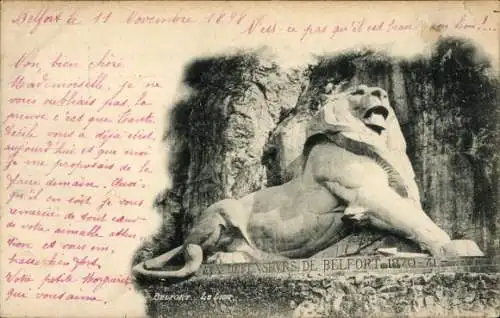 Belfort le 11 Novembre 1898
N'est-ce pas qu'il est beau mon lion!...
Mon bien chère
Mademoiselle, je ne
vous oubliais pas, la
preuve c'est que
vous a déjà écrit
aujourd'hui et que moi
je me proposais de la
faire demain.
qu'il en soit je vous
remercie de tout cœur
de votre aimable
vous et vous
bien fort.
Votre petite
qui vous aime
AUX DEFENSEURS DE BELFORT 1870-71
BELFORT. LE LION